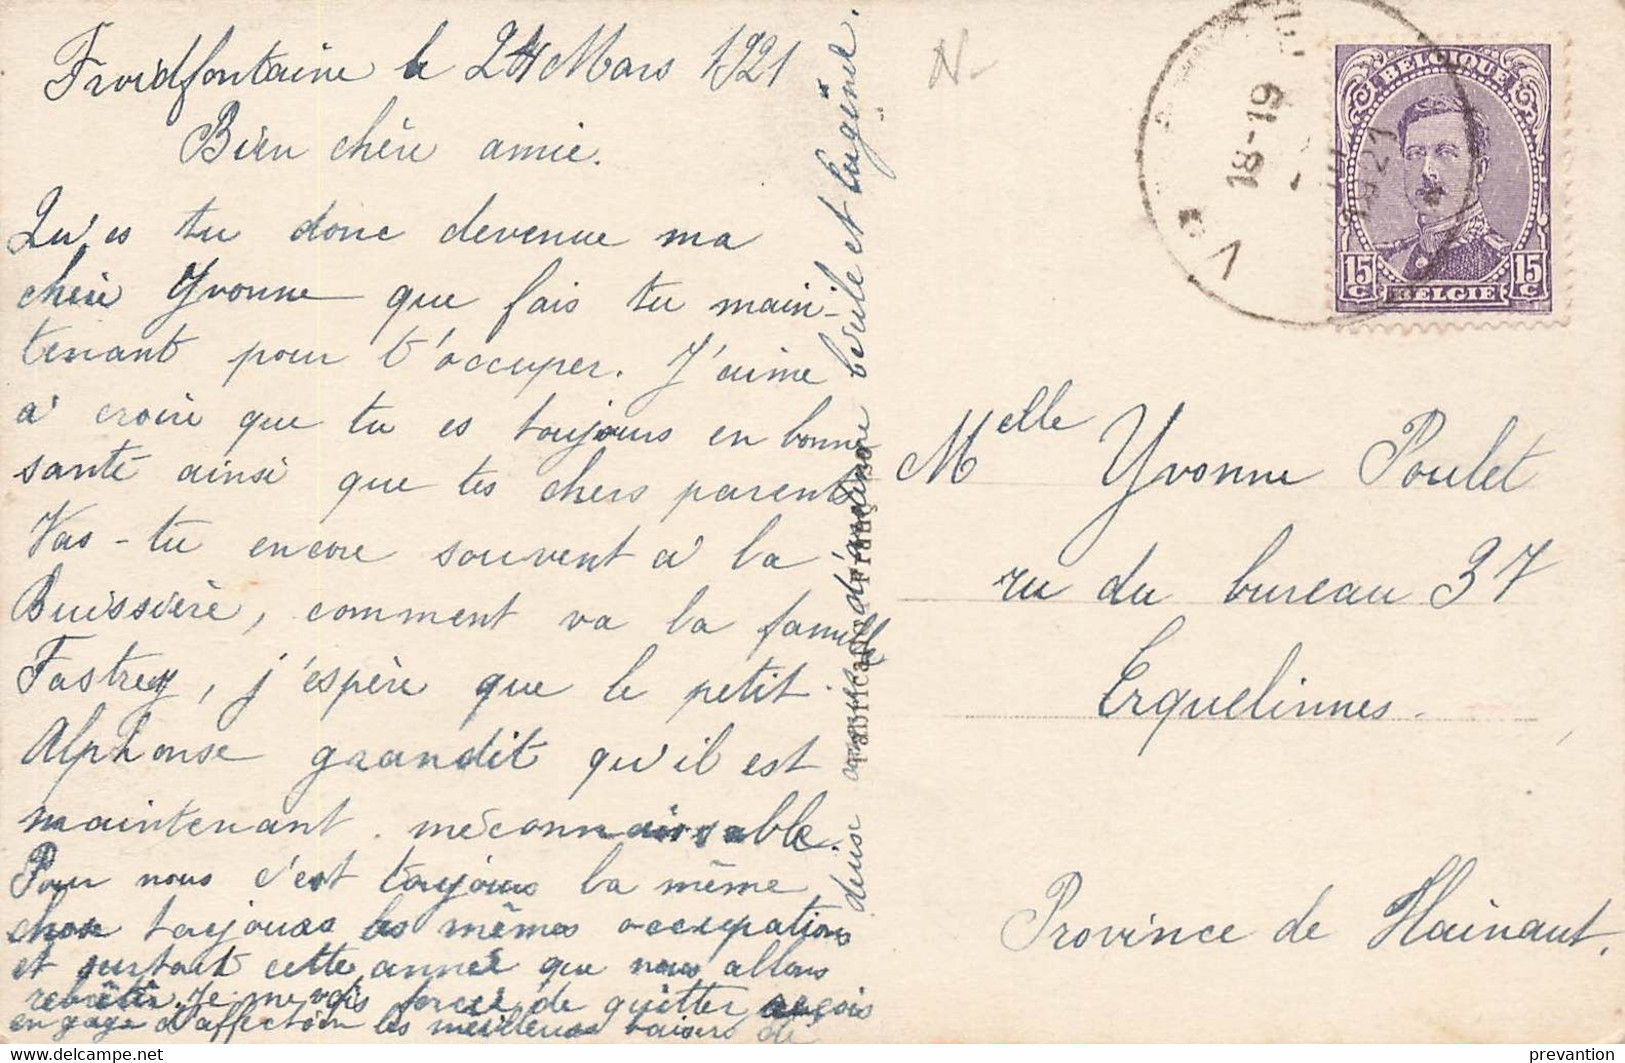 Froidfontaine le 24 Mars 1921
Bien chère amie.
Qu'es tu donc devenue ma
chère Yvonne que fais tu main-
tenant pour t'occuper. J'aime
à croire que tu es toujours en bonne
santé ainsi que tes chers parents
Vas-tu encore souvent à la
Buissière, comment va la famille
Fastrez, j'espère que le petit
Alphonse grandit qu'il est
maintenant méconnaissable.
Pour nous c'est toujours la même
chose toujours les mêmes occupations
et surtout cette année que nous allons
rebâtir. Je me vois forcée de quitter reçois
en gage d'affection les meilleurs baisers de
et Eugénie.
N-
18-19
1921
BELGIQUE
15 C
15 C
BELGIE
Melle Yvonne Poulet
ru du bureau 37
Erquelinnes.
Province de Hainaut.
prevantion